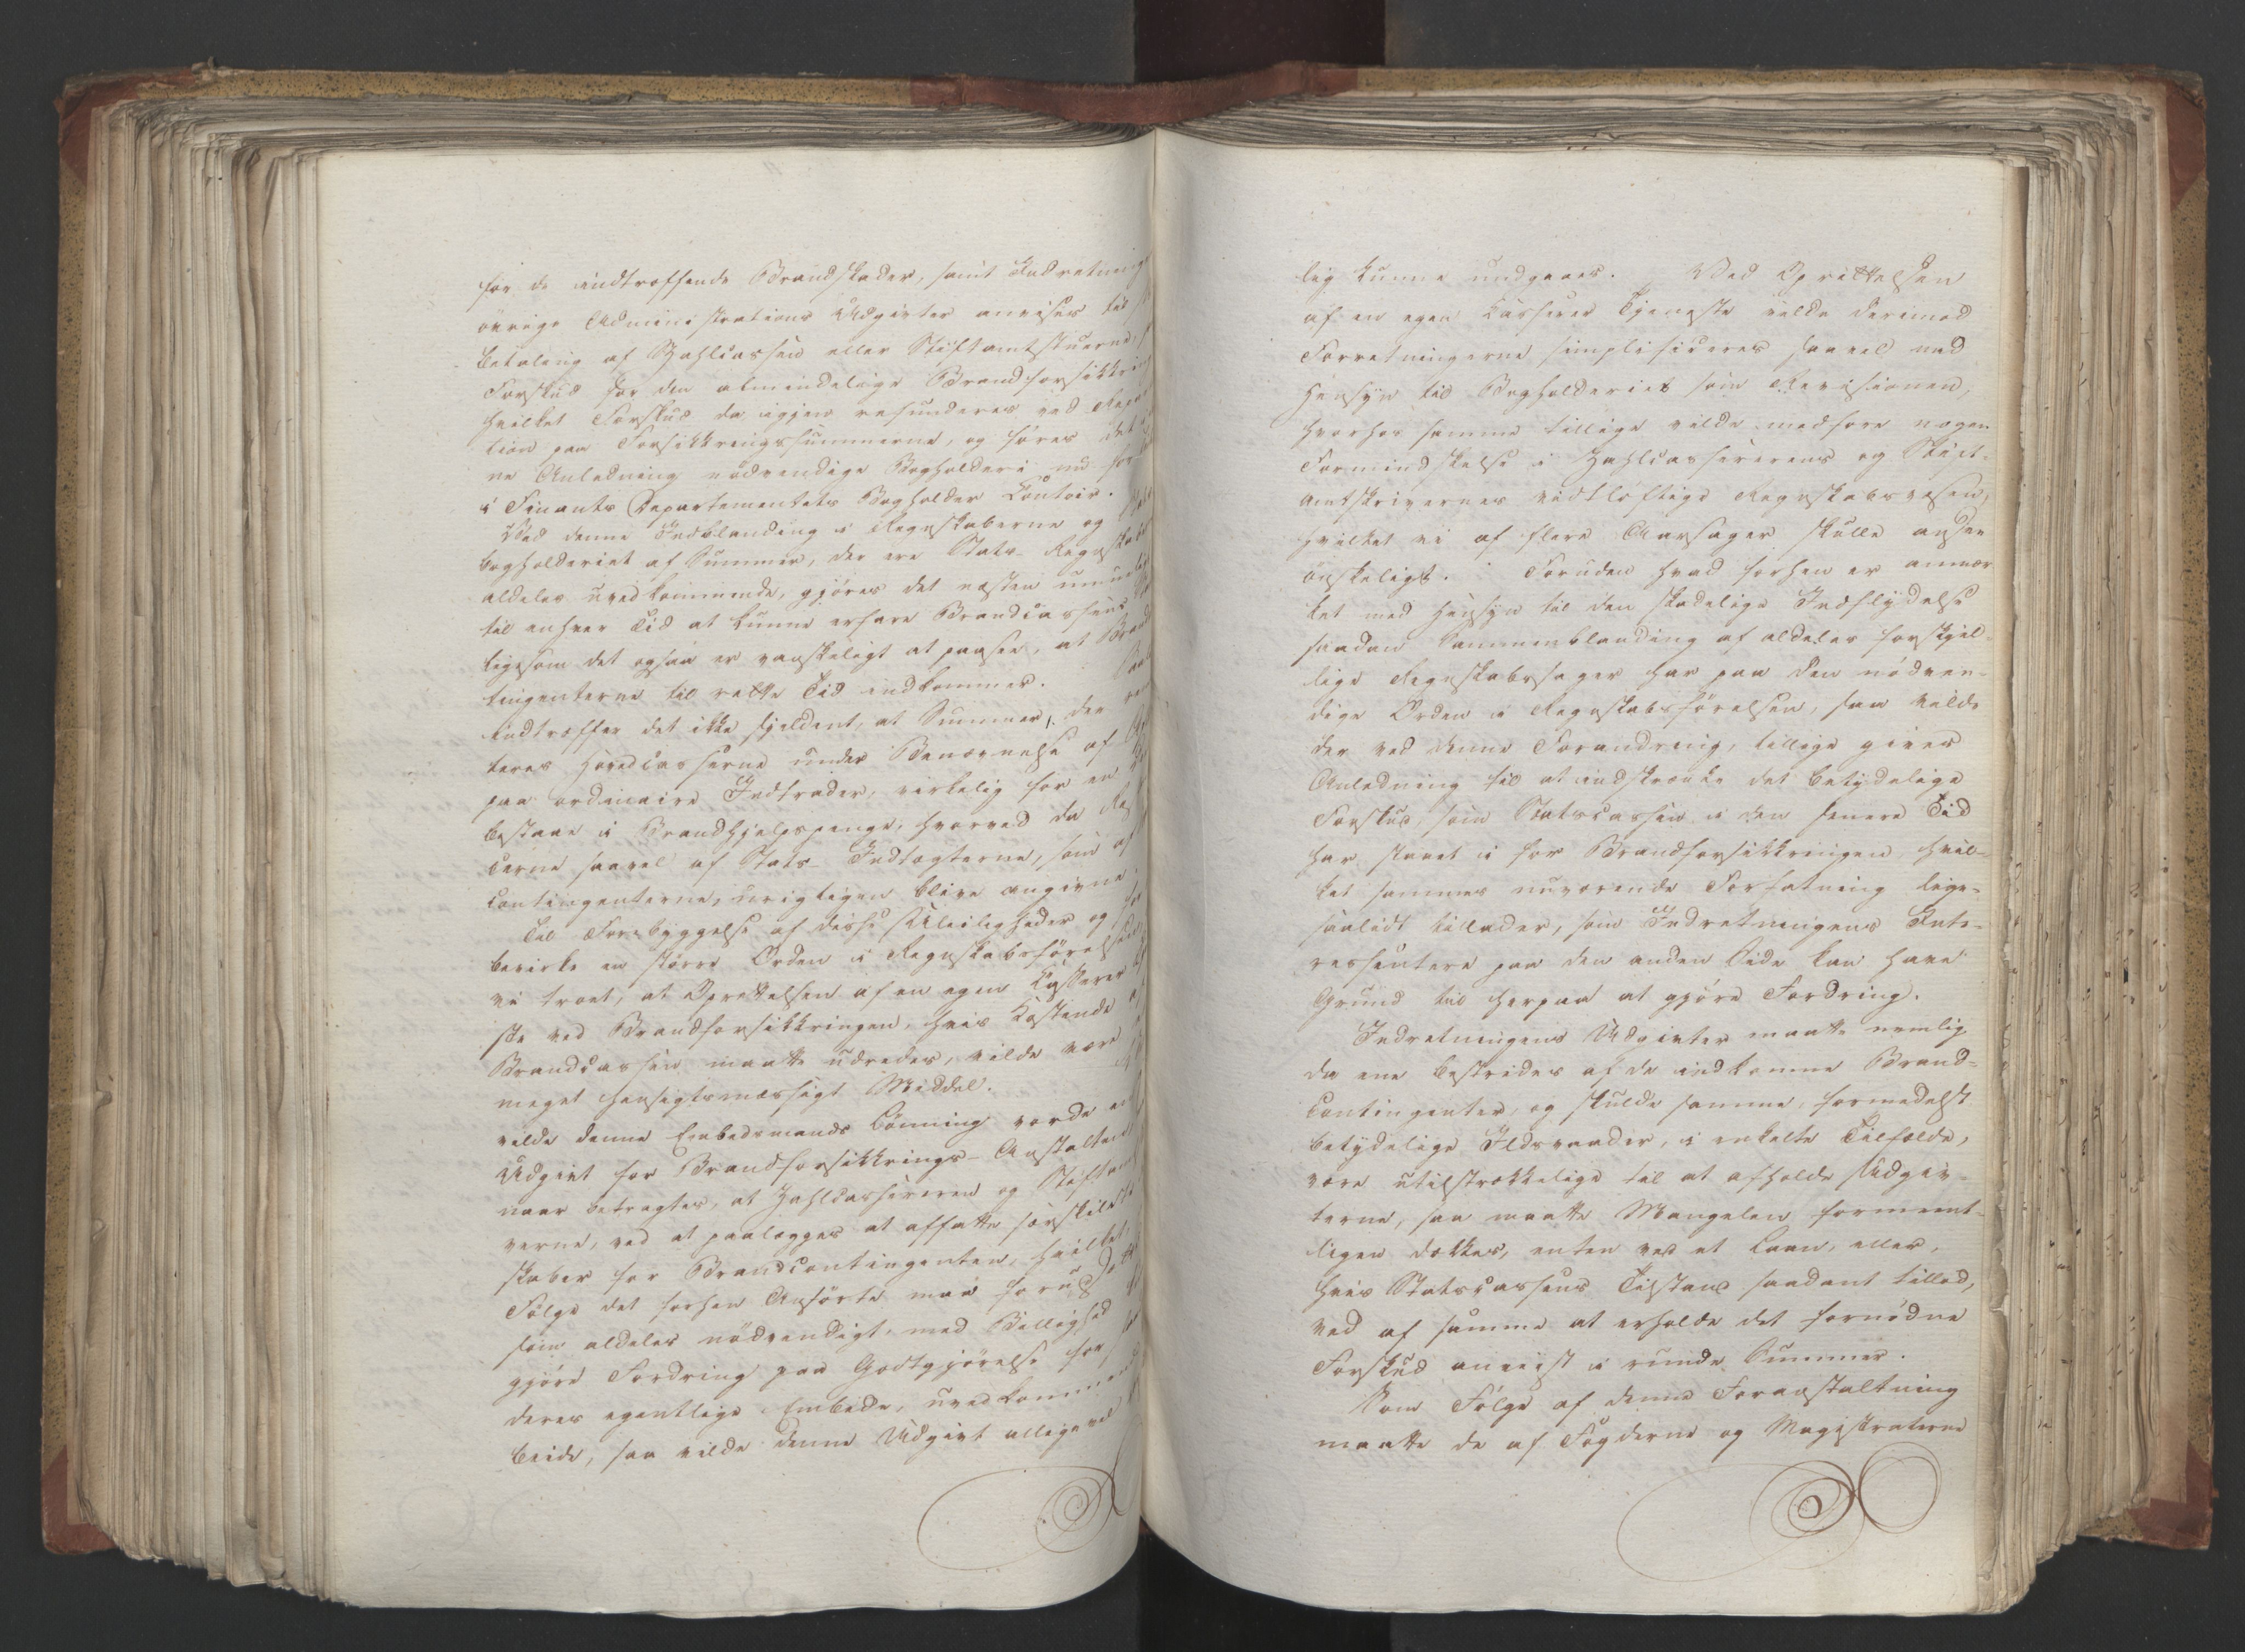 for de indtræffende Brandskader, samt Indretning
øvrige Administrations Udgivter anvises til
Betaling af Zahlcassen eller Stiftamtstuerne,
Forskud for den almindelige Brandforsikkrin
hvilket Forskud da igjen refunderes ved Repar
tion paa Forsikkringssummerne, og føres det i
ne Anledning nødvendige Bogholderi nu for
i Finants Departementets Bogholder Contoir.
Ved denne Indblanding i Regnskaberne og
bogholderiet af Summer, der ere Stats- Regnskab
aldeles uvedkommende, gjøres det næsten umuelig
til enhver Tid at kunne erfare Brandcassens
ligesom det ogsaa er vanskeligt at paasee, at Brand
tingenterne til rette Tid indkommer.
indtræffer det ikke sjeldent, at Summer, der
teres Hovedcasserne under Benævnelse af
paa ordinaire Indtrader, virkelig for en
bestaae i Brandhjelpspenge, hvorved da
cerne saavel af Stats Indtægterne, som af
Contingenterne, urigtigen blive angivne.
Til Forebyggelse af disse Uleiligheder og
bevirke en større Orden i Regnskabsførelsen,
vi troet, at Oprettelsen af en egen Kasserer
ste ved Brandforsikkringen, hvis Kostende
Brandcassen maatte udredes, vilde være
meget hensigtsmæssigt Middel.
vilde denne Embedsmands Lønning vorde en
Udgivt for Brandforsikkrings- Anstalten
naar betragtes, at Zahlcassereren og Stiftamt
verne, ved at paalægges at affatte særskilte
skaber for Brandcontingenten, hvilket
Følge det forhen Anførte maa forud
som aldeles nødvendigt, med Billighed
gjøre Fordring paa Godtgjørelse for
deres egentlige Embede, uvedkommend
beide, saa vilde denne Udgivt alligevel
lig kunne undgaaes. Ved Oprettelsen
af en egen Casserer Tjeneste vilde derimod
Forretningerne simplificeres saavel med
Hensyn til Bogholderiet som Revisionen,
hvorhos samme tillige vilde medføre nogen
Formindskelse i Zahlcassererens og Stift-
amtskrivernes vidtløftige Regnskabsvæsen,
hvilket vi af flere Aarsager skulle ansee
ønskeligt. Foruden hvad forhen er anmær
ket med Hensyn til den skadelige Indflydelse
saadan Sammenblanding af aldeles forskjel-
lige Regnskabssager har paa den nødven-
dige Orden i Regnskabsførelsen, saa vilde
der ved denne Forandring, tillige gives
Anledning til at indskrænke det betydelige
Forskud, som Statscassen i den senere Tid
har staaet i for Brandforsikkringen, hvil-
ket sammes nuværende Forfatning lige-
saalidt tillader, som Indretningens Inte-
ressentere paa den anden Side kan have
Grund til herpaa at gjøre Fordring.
Indretningens Udgivter maatte nemlig
da ene bestrides af de indkomne Brand-
Contingenter, og skulde samme, formedelst
betydelige Ildsvaader, i enkelte Tilfælde,
være utilstrækkelige til at afholde Udgiv-
terne, saa maatte Mangelen formeent-
ligen dækkes, enten ved et Laan, eller,
hvis Statscassens Tilstand saadant tillod,
ved af samme at erholde det fornødne
Forskud anviist i runde Summer.
Som Følge af denne Foranstaltning
maatte de af Fogderne og Magistraterne